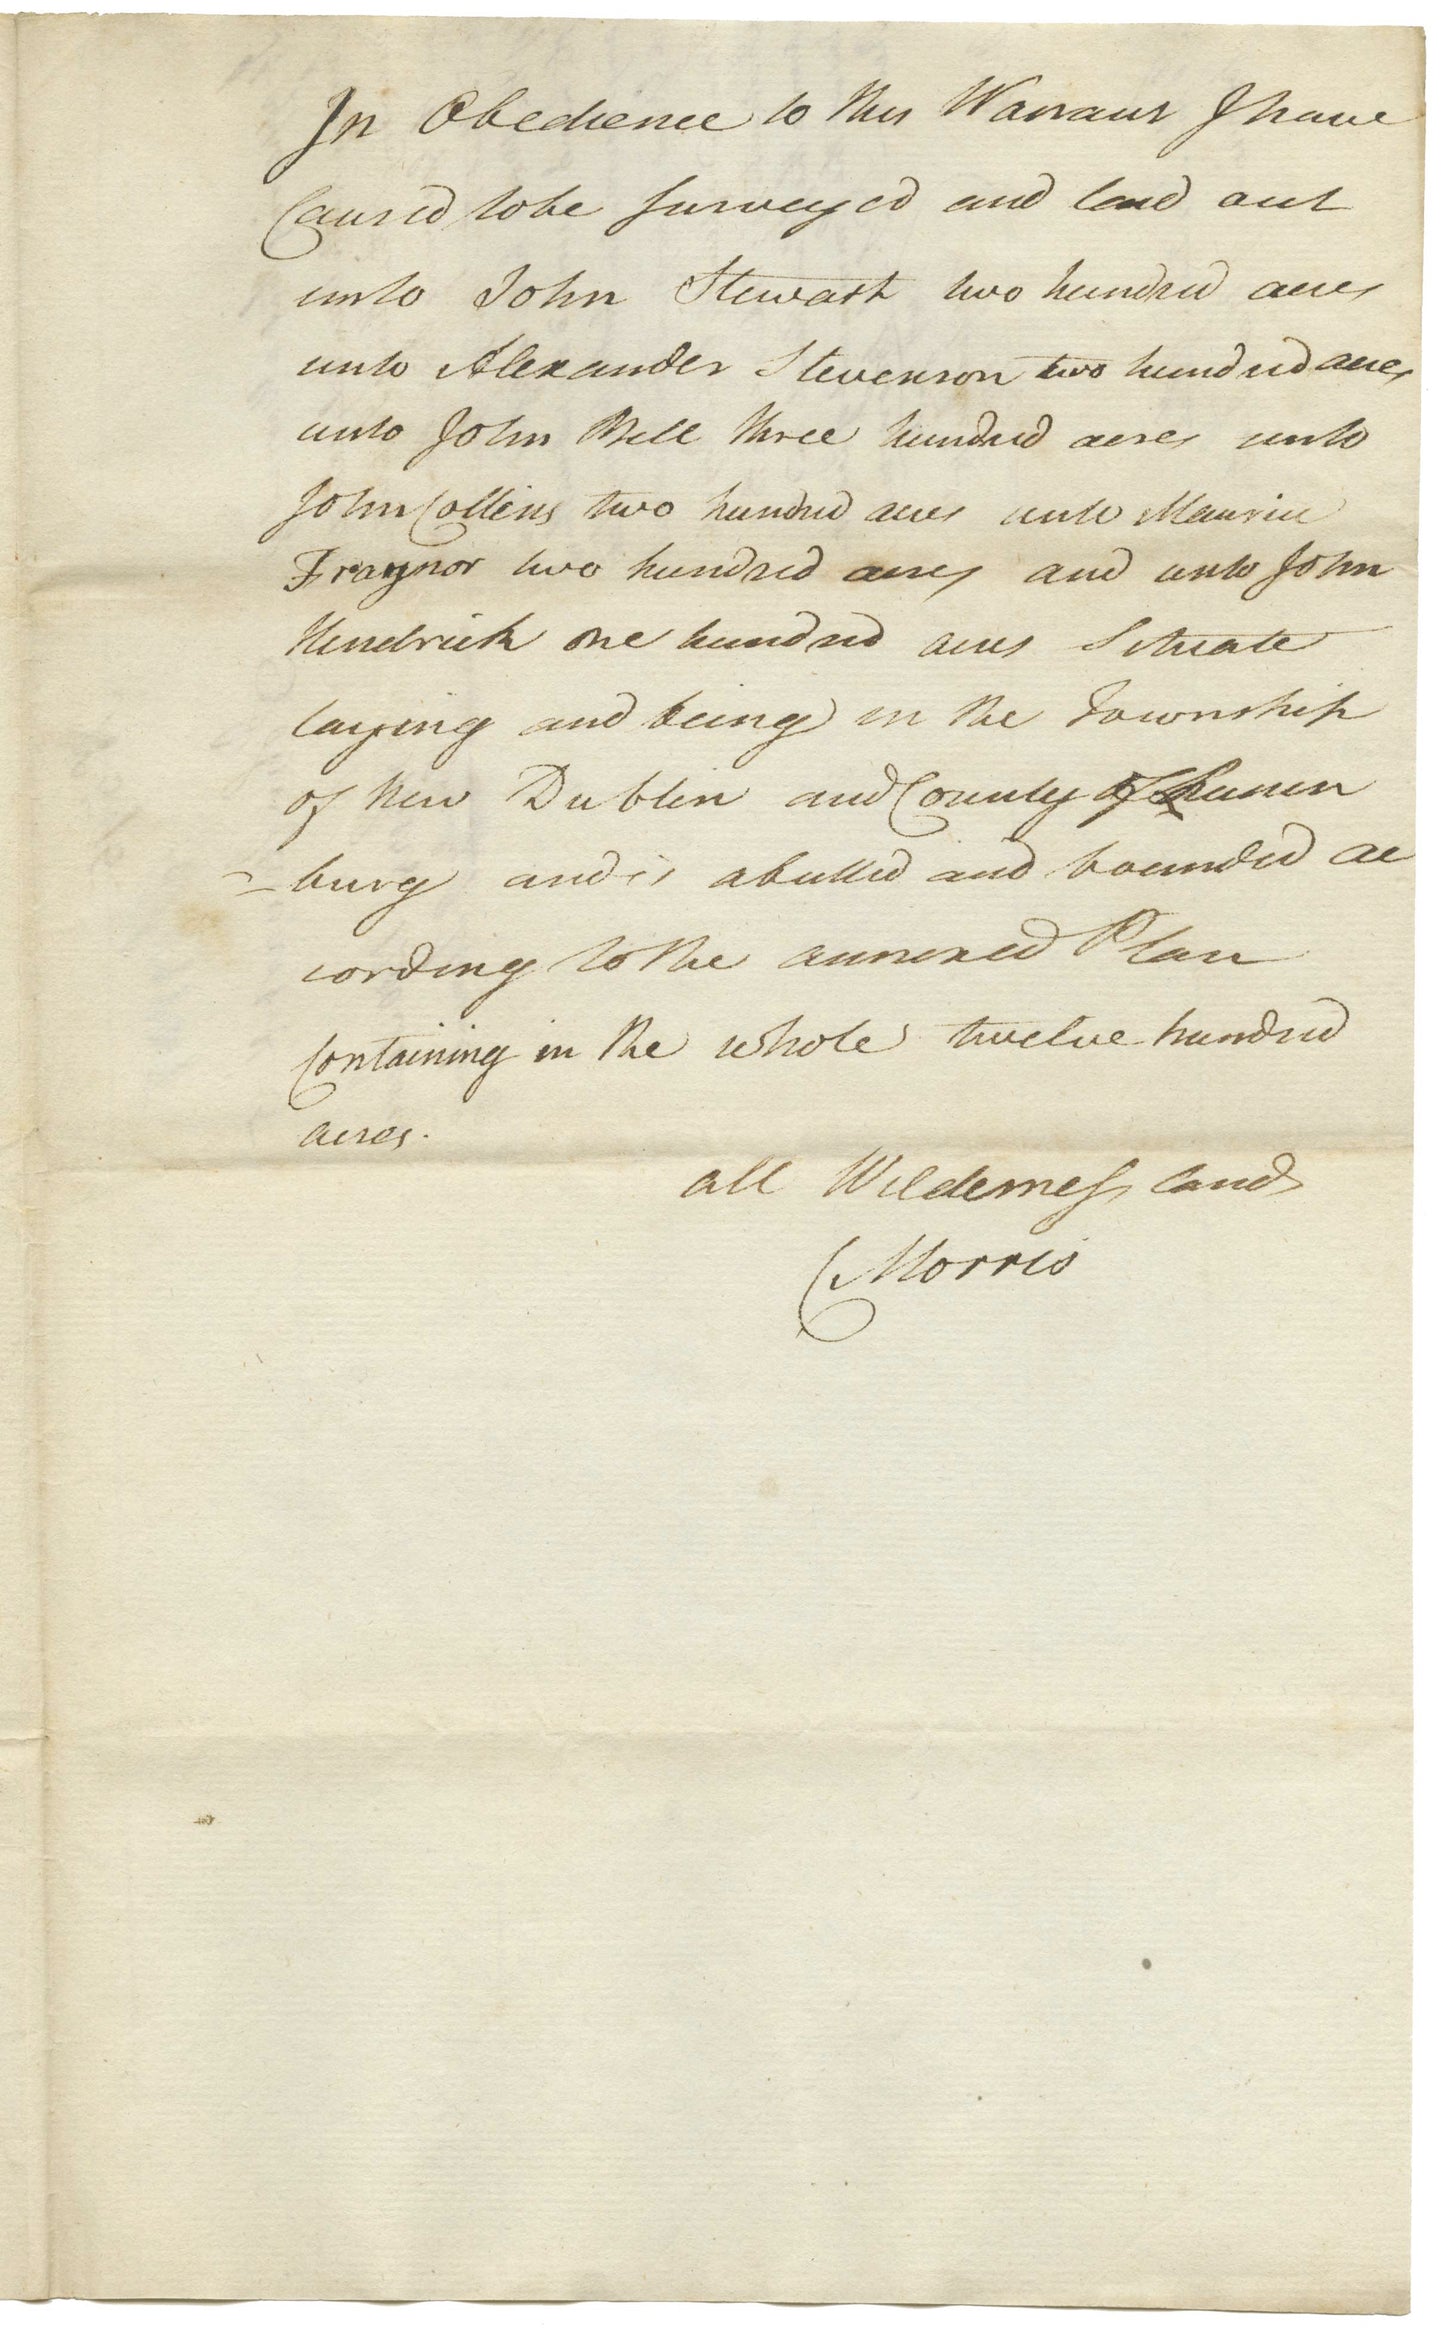 In Obedience to this Warrant I have
Caused to be Surveyed and laid out
unto John Stewart two hundred acres
unto Alexander Stevenson two hundred acres
unto John Bell three hundred acres unto
John Collins two hundred acres unto Maurice
Traynor two hundred acres and unto John
Hendrick one hundred acres Situate
laying and being in the Township
of New Dublin and County of Lunen
=burg and is abutted and bounded ac
cording to the annexed Plan
Containing in the whole twelve hundred
acres.
all Wilderness lands
CMorris